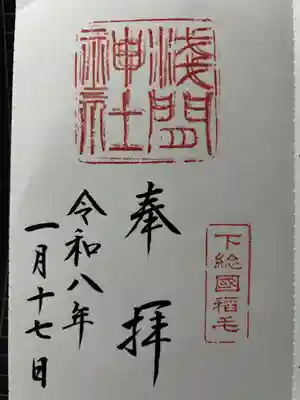 下総國稲毛
奉拝
淺間神社
令和八年
一月十七日